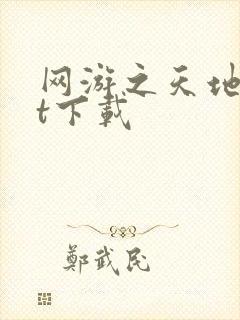 网游之天地
t下载
鄭武民